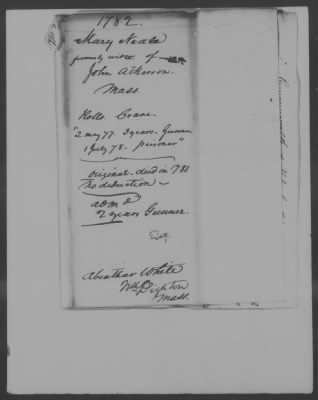 1782.
Mary Neale
formerly widow of
John Atkerson.
Mass.
Rolls. Crane.
"2 may 77. 3 years. Gunner
1 July 78. prisoner"
original died in 1781
No deduction
2 years Gunner.
Abiathar White
No Dighton
Mass.